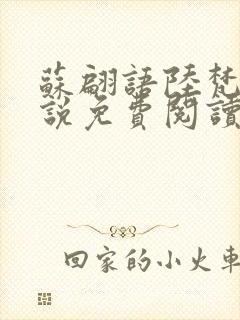 蘇翩語陸梵
說免費閱讀
回家的小火車